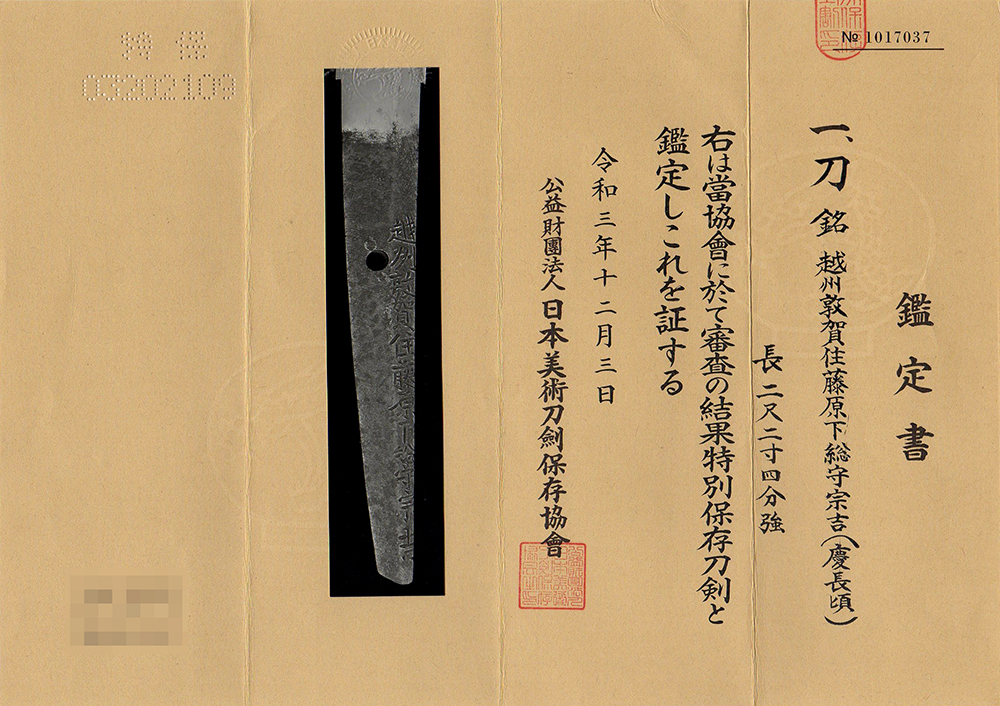 № 1017037
鑑定書
一、刀 銘 越州敦賀住藤原下総守宗吉(慶長頃)
長 二尺二寸四分強
右は當協會に於て審査の結果特別保存刀剣と
鑑定しこれを証する
令和三年十二月三日
公益財團法人 日本美術刀劍保存協會
越州敦賀住藤原下総守宗吉
特保
03202109